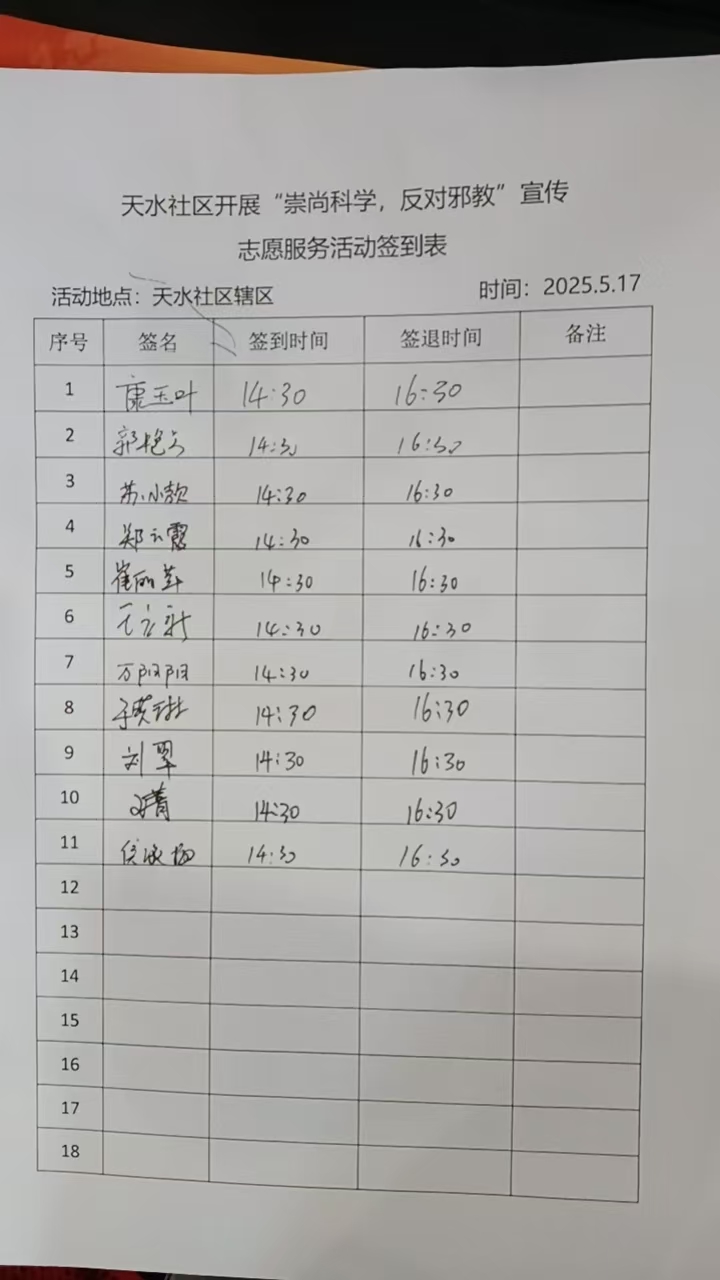 天水社区开展“崇尚科学，反对邪教”宣传
志愿服务活动签到表
活动地点：天水社区辖区 时间：2025.5.17
序号 签名 签到时间 签退时间 备注
1 康玉叶 14:30 16:30
2 14:30 16:30
3 苏小款 14:30 16:30
4 郑云霞 14:30 16:30
5 崔丽萍 14:30 16:30
6 14:30 16:30
7 万阳阳 14:30 16:30
8 14:30 16:30
9 刘翠 14:30 16:30
10 14:30 16:30
11 14:30 16:30
12
13
14
15
16
17
18